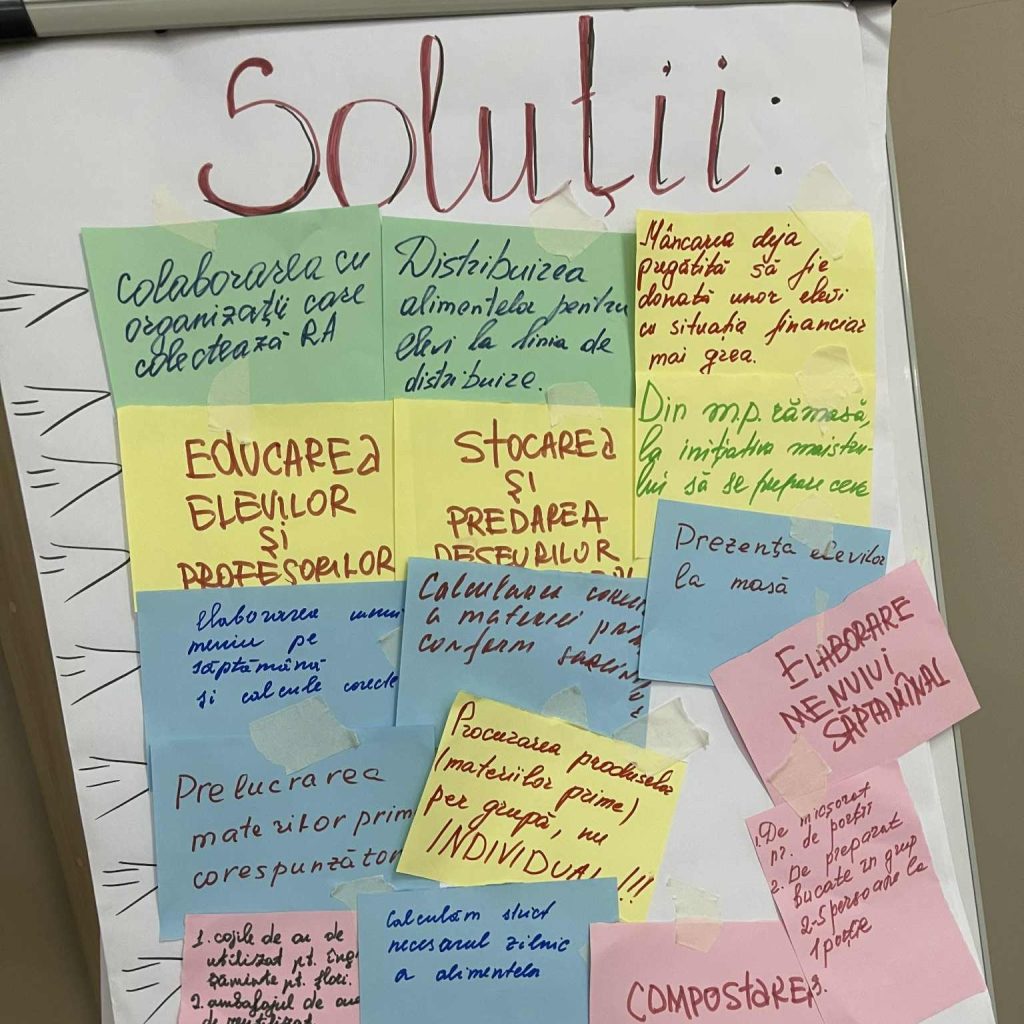 Soluții:
Colaborarea cu
organizații care
colectează RA
Distribuirea
alimentelor pentru
elevi la linia de
distribuire.
Mâncarea deja
pregătită să fie
donată unor elevi
cu situația financiar
mai grea.
EDUCAREA
ELEVILOR
ȘI
PROFESORILOR
STOCAREA
ȘI
PREDAREA
DEȘEURILOR
Din m.p. rămasă,
la inițiativa maistru-
lui să se prepare ceva
Prezența elevilor
la masă
Elaborarea unui
meniu pe
săptămână
și calcule corecte
Calcularea
a materiei
conform
ELABORARE
MENIULUI
SĂPTAMÎNAL
Prelucrarea
materiilor prim
corespunzător
Procurarea produselor
(materiilor prime)
per grupă, nu
INDIVIDUAL !!!
1. De micșorat
nr. de porții
2. De preparat
bucate în grup
2-5 persoane la
1 porție
3.
1. cojile de au de
utilizat pt. îngră
șăminte pt. flori.
2. ambalajul de au
de reutilizat
Calculăm strict
necesarul zilnic
a alimentelor
COMPOSTAREA